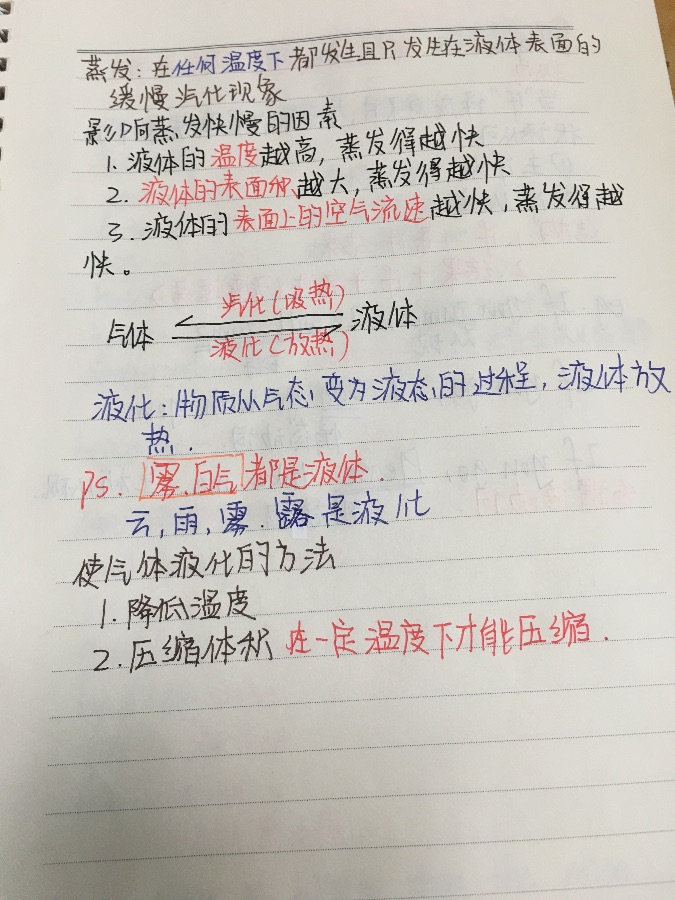 蒸发:在任何温度下都发生且只发生在液体表面的
缓慢汽化现象
影响蒸发快慢的因素
1.液体的温度越高,蒸发得越快
2.液体的表面积越大,蒸发得越快
3.液体的表面上的空气流速越快,蒸发得越
快。
汽化(吸热)
气体 液体
液化(放热)
液化:物质从气态变为液态的过程,液体放
热.
PS.雾.白气都是液体.
云,雨,雾.露是液化
使气体液化的方法
1.降低温度
2.压缩体积 在一定温度下才能压缩.